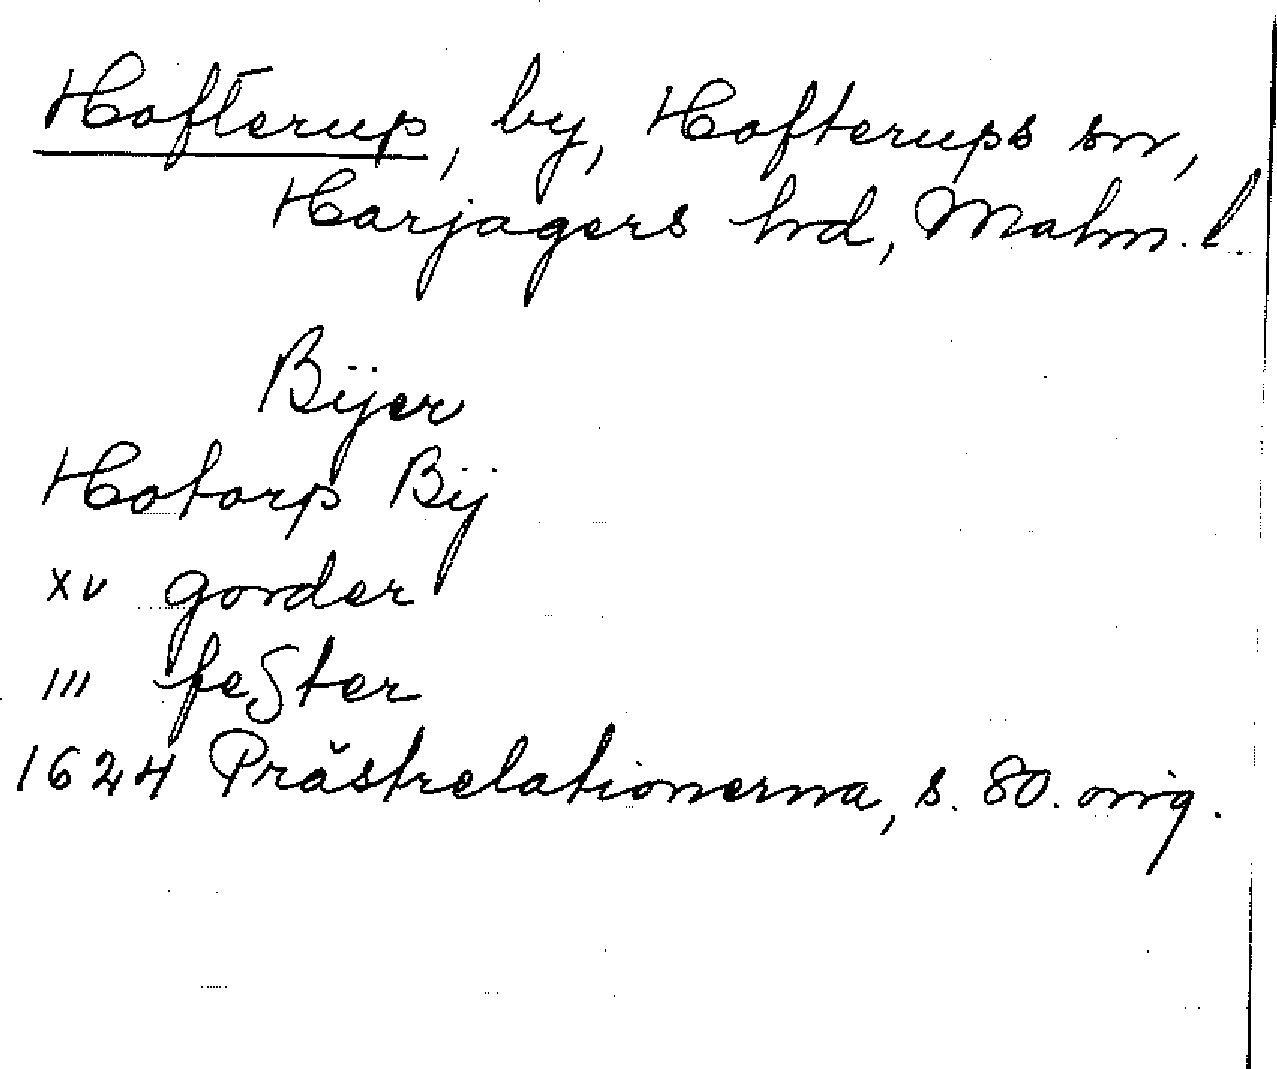 Hofterup, by, Hofterups sn,
Harjagers hd, Malm. l.
Bÿer
Hotorp Bÿ
xv gorder
III fester
1624 Prästrelationerna, s. 80. orig.